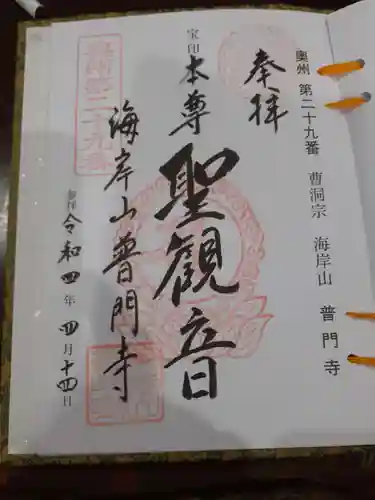 奥州 第二十九番 曹洞宗 海岸山 普門寺
奉拝
宝印
本尊
聖観音
海岸山普門寺
奥州第二十九番
参拝 令和四年四月十四日